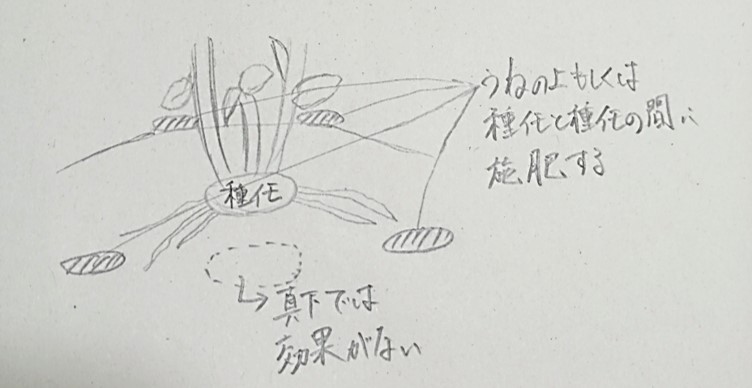 うねの上もしくは
種任と種任の間に
施肥する
種任
真下では
効果がない